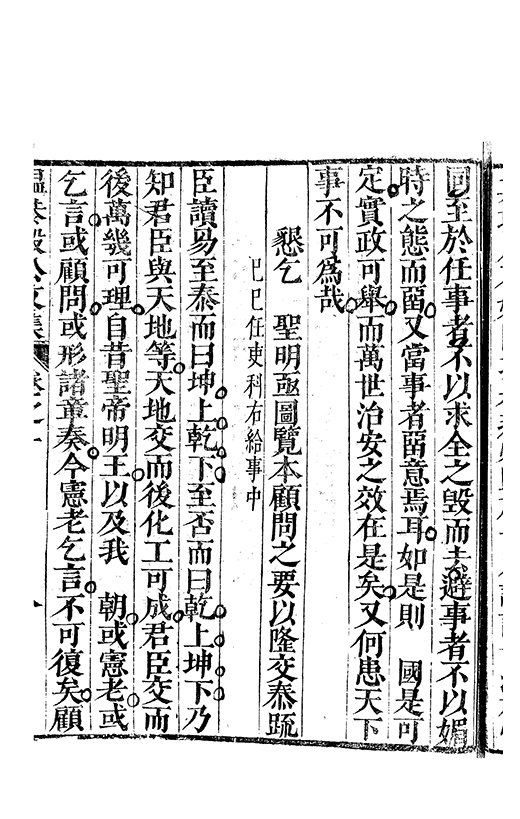 同至於任事者不以求全之毀而去避事者不以媚
時之態而畱又當事者畱意焉耳如是則　國是可
定實政可舉而萬世治安之效在是矣又何患天下
事不可爲哉
懇乞　聖明亟圖覽本顧問之要以隆交泰䟽
巳巳任吏科右給事中
臣讀易至泰而曰坤上乾下至否而曰乾上坤下乃
知君臣與天地等天地交而後化工可成君臣交而
後萬幾可理自昔聖帝明王以及我　朝或憲老或
乞言或顧問或形諸章奏今憲老乞言不可復矣顧